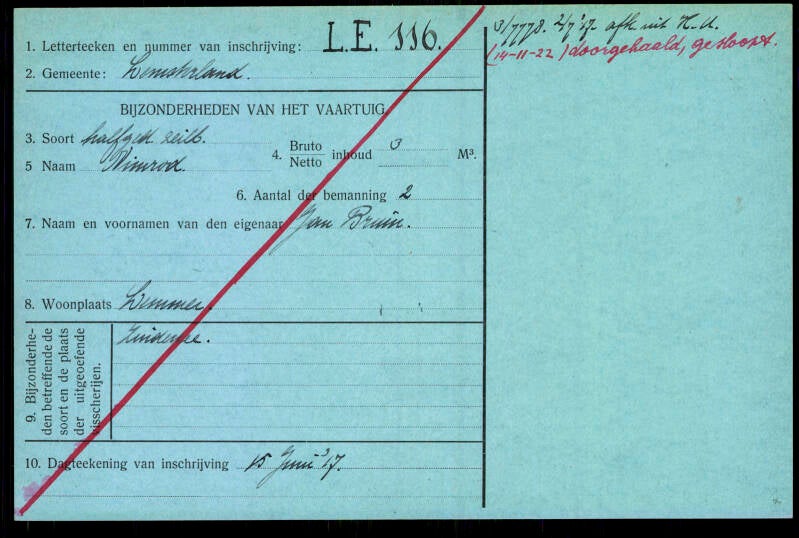 1. Letterteeken en nummer van inschrijving: L.E. 116.
2. Gemeente: Lemsterland.
BIJZONDERHEDEN VAN HET VAARTUIG
3. Soort halfged. zeilb.
4. Bruto Netto inhoud 3 M³.
5 Naam Nimrod.
6. Aantal der bemanning 2
7. Naam en voornamen van den eigenaar Jan Bruin.
8. Woonplaats Lemmer.
9. Bijzonderhe-
den betreffende de
soort en de plaats
der uitgeoefende
visscherijen.
Zuiderzee.
10. Dagteekening van inschrijving 15 Juni '17.
3/7778. 2/7 '17. afk uit H.A.
(14-11-22) doorgehaald, gesloopt.